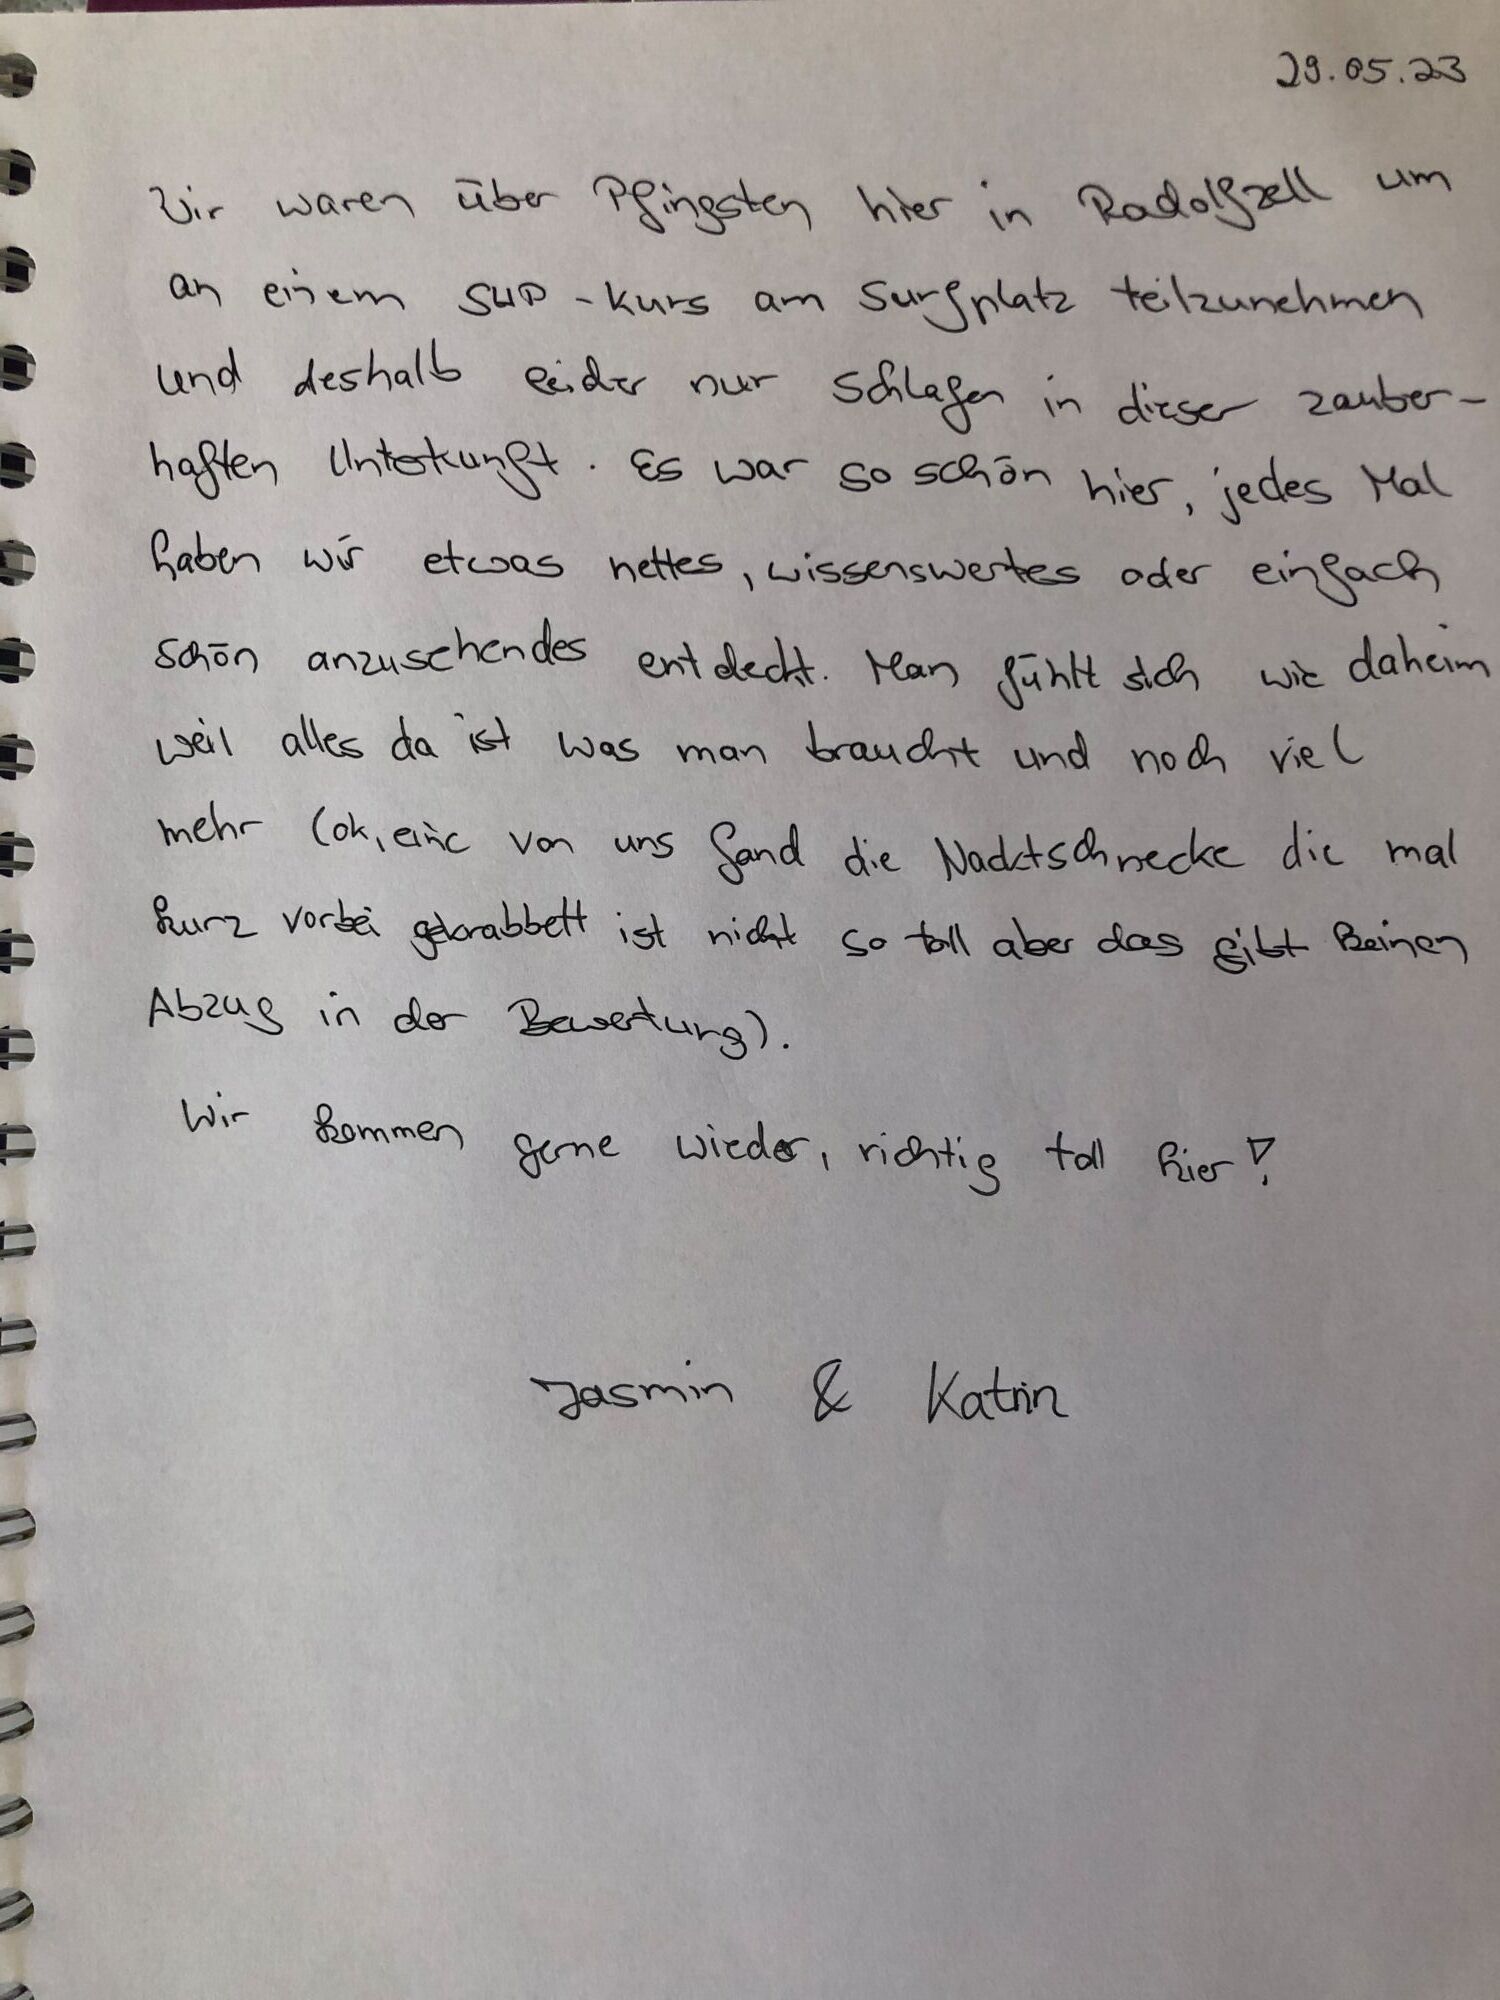 29.05.23
Wir waren über Pfingsten hier in Radolfzell um
an einem SUP-Kurs am Surfplatz teilzunehmen
und deshalb leider nur schlafen in dieser zauber-
haften Unterkunft. Es war so schön hier, jedes Mal
haben wir etwas nettes, wissenswertes oder einfach
schön anzusehendes entdeckt. Man fühlt sich wie daheim
weil alles da ist was man braucht und noch viel
mehr (ok, eine von uns fand die Nacktschnecke die mal
kurz vorbei gekrabbelt ist nicht so toll aber das gibt keinen
Abzug in der Bewertung).
Wir kommen gerne wieder, richtig toll hier!
Jasmin & Katrin